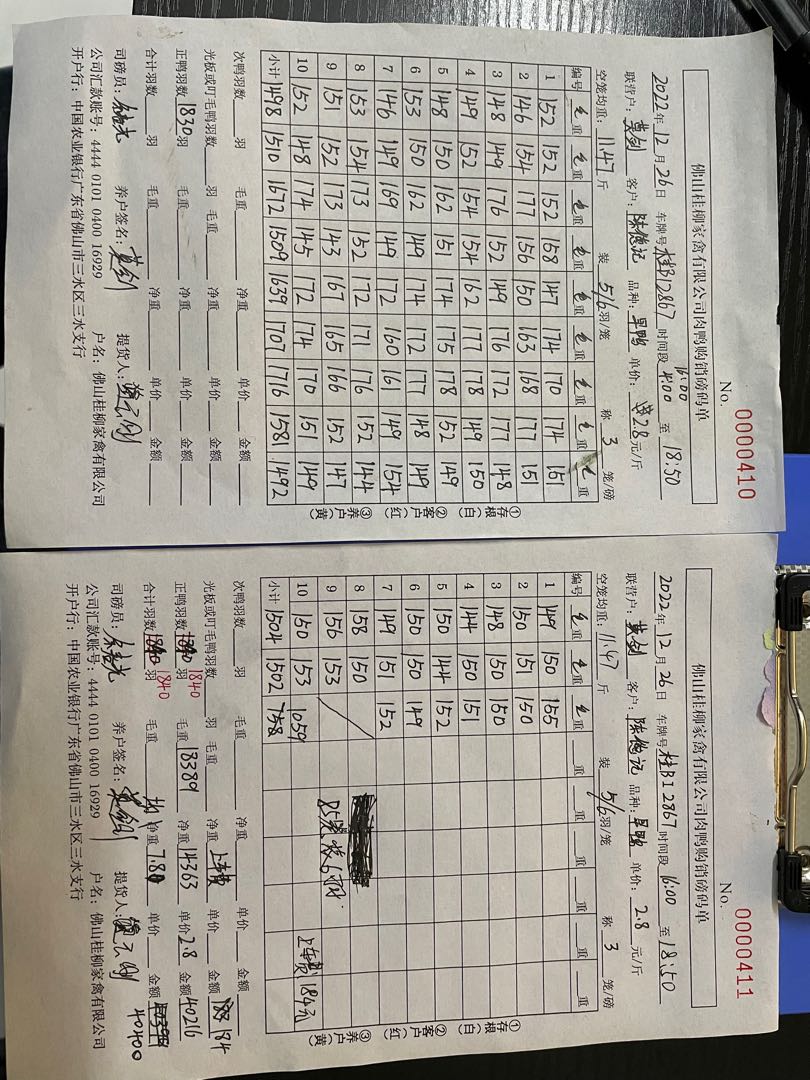 No. 0000410
佛山桂柳家禽有限公司肉鸭购销磅码单
2022年12月26日 车牌号桂B12867 时间段 16:00 至 18:50
联营户：莫剑 客户：陈德记 品种：旱鸭 单价：2.8元/斤
空笼均重：11.47斤 装5/6羽/笼 称3笼/磅
编号 毛重 毛重 毛重 毛重 毛重 毛重 毛重 毛重 毛重
1 152 152 152 158 147 174 170 174 151
2 146 154 177 156 150 163 168 177 151
3 148 149 176 152 149 176 172 177 148
4 149 152 154 154 162 177 178 149 150
5 148 150 162 151 174 175 178 152 149
6 153 150 162 149 174 172 177 148 149
7 146 149 169 149 172 160 161 149 154
8 153 154 173 152 172 171 176 152 144
9 151 152 173 143 167 165 166 152 147
10 152 148 174 145 172 174 170 151 149
小计 1498 1510 1672 1509 1639 1707 1716 1581 1492
①存根（白） ②客户（红） ③养户（黄）
次鸭羽数 羽 毛重 净重 单价 金额
光板或叮毛鸭羽数 羽 毛重 净重 单价 金额
正鸭羽数 1830 羽 毛重 净重 单价 金额
合计羽数 羽 毛重 净重 单价 金额
司磅员： 养户签名：莫剑 提货人：
公司汇款账号：4444 0101 0400 16929 户名：佛山桂柳家禽有限公司
开户行：中国农业银行广东省佛山市三水区三水支行
No. 0000411
佛山桂柳家禽有限公司肉鸭购销磅码单
2022年12月26日 车牌号桂B12867 时间段 16:00 至 18:50
联营户：莫剑 客户：陈德记 品种：旱鸭 单价：2.8 元/斤
空笼均重：11.47斤 装5/6羽/笼 称3笼/磅
编号 毛重 毛重 毛重 重 重 重 重 重 重
1 149 150 155
2 150 151 150
3 148 150 150
4 144 150 151
5 150 144 152
6 150 150 149
7 149 151 152
8 158 150
9 156 153
10 150 153 1059 上车费184元
小计 1504 1502 758
①存根（白） ②客户（红） ③养户（黄）
次鸭羽数 羽 毛重 净重 单价 金额
光板或叮毛鸭羽数 羽 毛重 净重 上车费 单价 金额 184
正鸭羽数 1840 羽 毛重 18389 净重 14363 单价 2.8 金额 40216
合计羽数 1840 羽 毛重 均 净重 7.80 单价 金额 40400
司磅员： 养户签名：莫剑 提货人：
公司汇款账号：4444 0101 0400 16929 户名：佛山桂柳家禽有限公司
开户行：中国农业银行广东省佛山市三水区三水支行